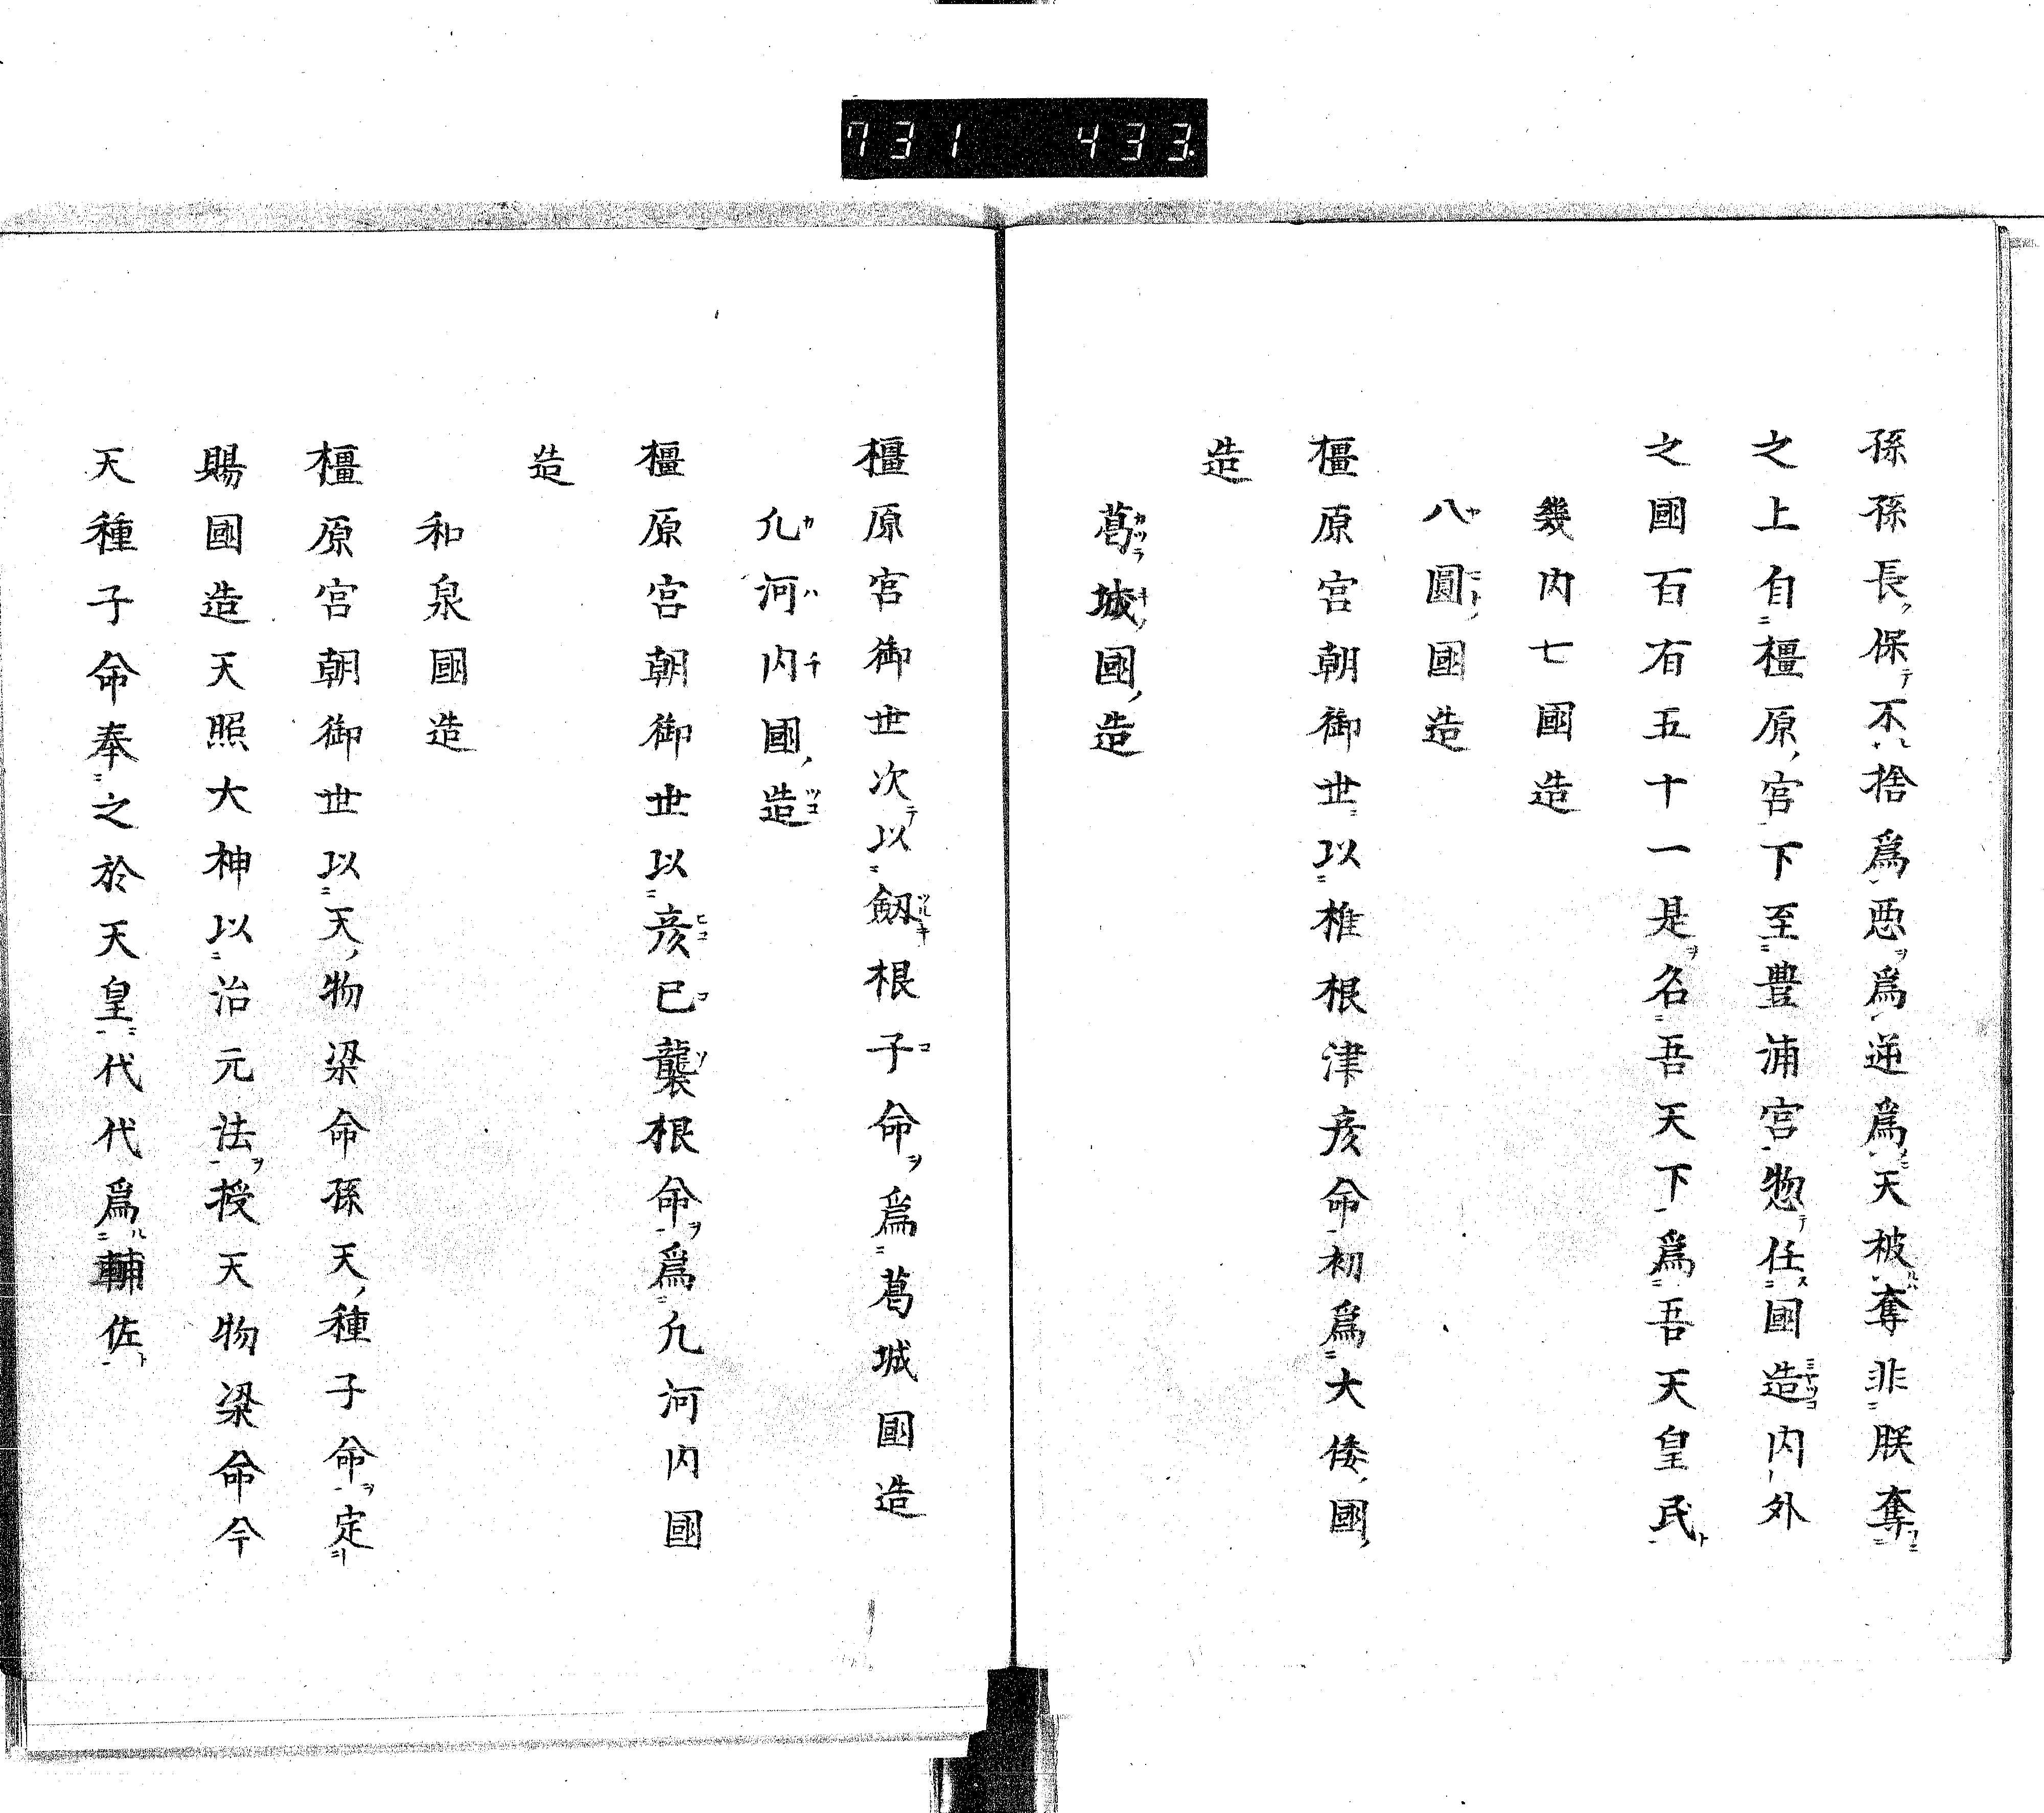 731 433
孫孫長保不捨爲悪爲逆爲天被奪非朕奪
之上自橿原宮下至豊浦宮惣任國造内外
之國百有五十一是名吾天下爲吾天皇民
幾内七國造
八圓國造
橿原宮朝御世以椎根津彦命初爲大倭國
造
葛城國造
橿原宮御世次以劔根子命爲葛城國造
凢河内國造
橿原宮朝御世以彦已襲根命爲凢河内國
造
和泉國造
橿原宮朝御世以天物梁命孫天種子命定
賜國造天照大神以治元法授天物梁命今
天種子命奉之於天皇代代爲輔佐